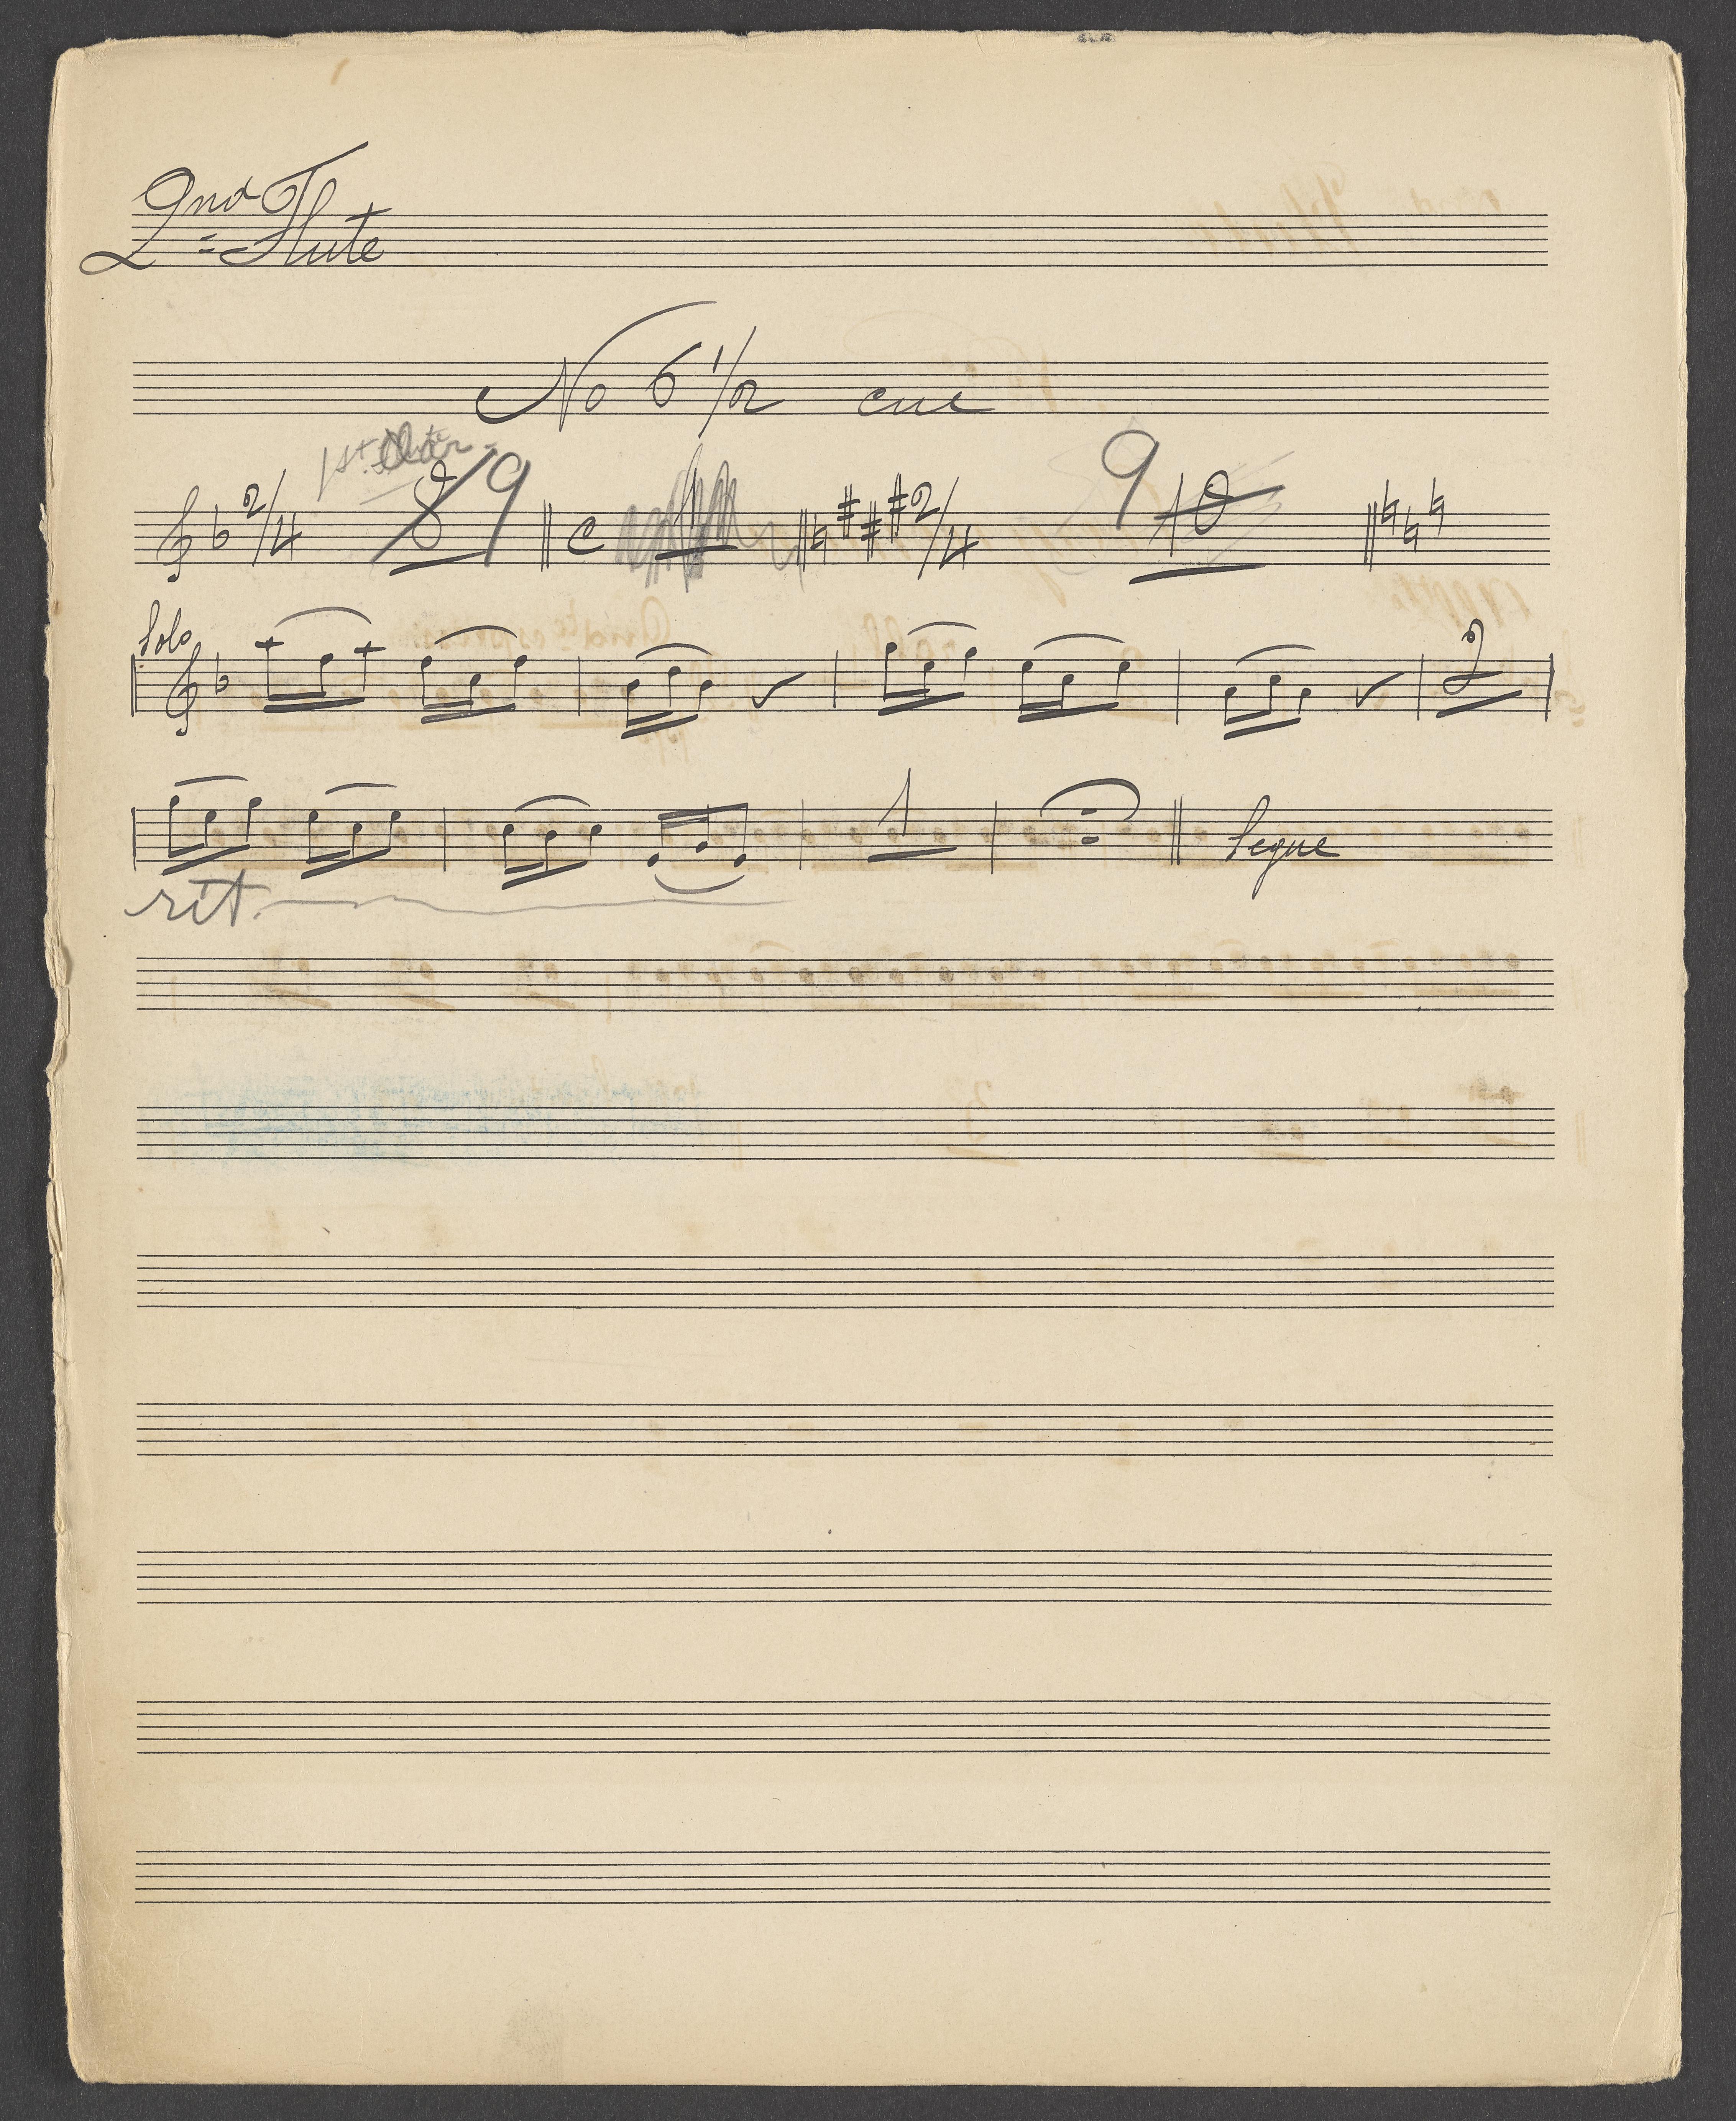 2nd Flute
No 6 1/2 cue
1st
2/4 8 9 C 2/4 9 10
Solo
2
1 Segue
rit.